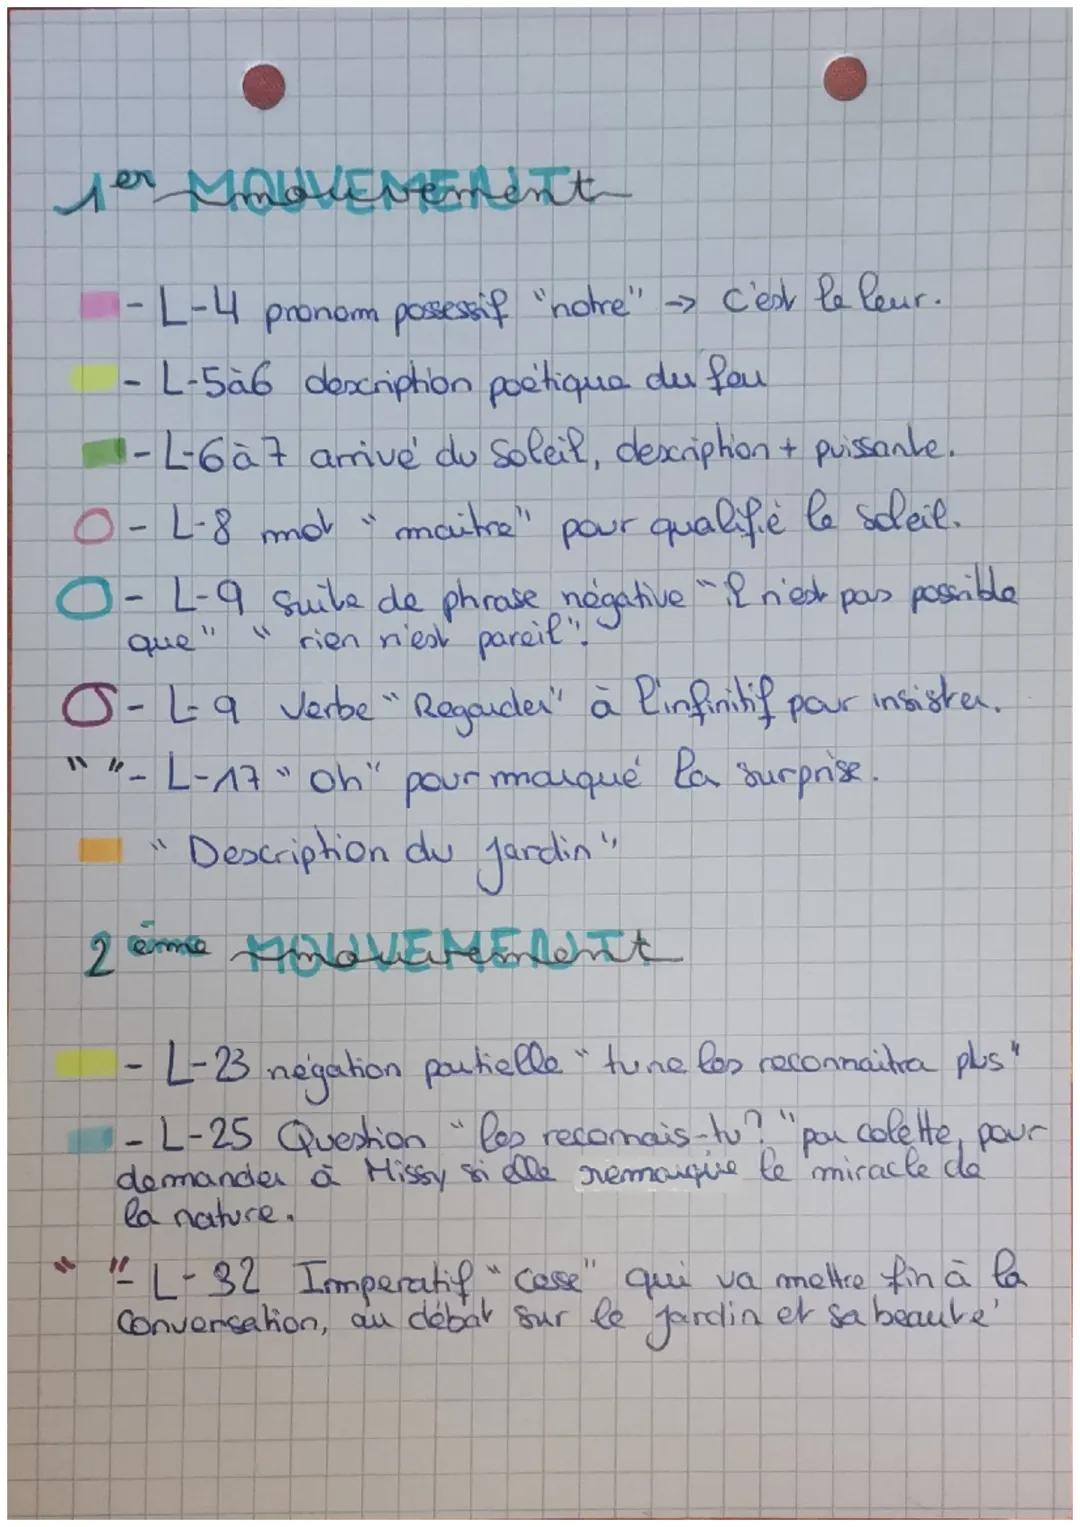 1er MOUVEMENT mouvement
- L-4 pronom possessif "notre" → c'est le leur.
- L-5à6 description poétique du feu
- L-6à7 arrivé du soleil, description + puissante.
- L-8 mot "maitre" pour qualifié le soleil.
- L-9 suite de phrase négative "il n'est pas possible
que" " rien n'est pareil".
- L-9 Verbe "Regarder" à l'infinitif pour insister.
" "- L-17 "Oh" pour marqué la surprise.
"Description du jardin"
2ème MOUVEMENT mouvement
- L-23 négation partielle "tu ne les reconnaitra plus"
- L-25 Question "les reconnais-tu?" par colette, pour
demander à Missy si elle remarque le miracle de
la nature.
" "- L-32 Imperatif "cesse" qui va mettre fin à la
conversation, au débat sur le jardin et sa beauté